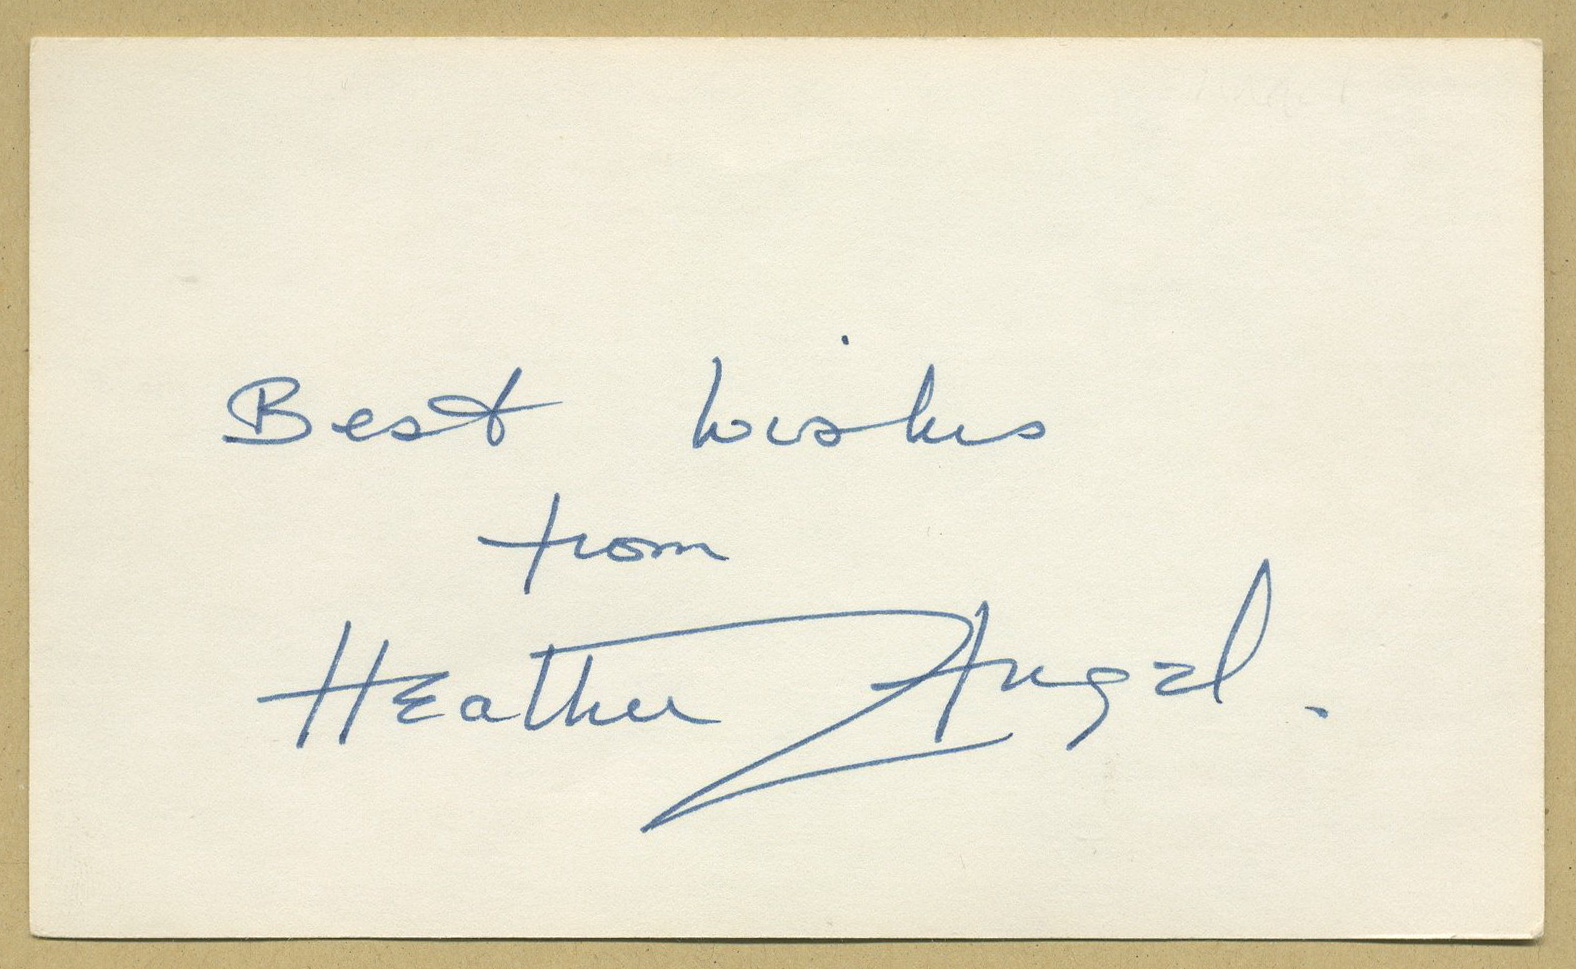 Best wishes
from
Heather Angel.